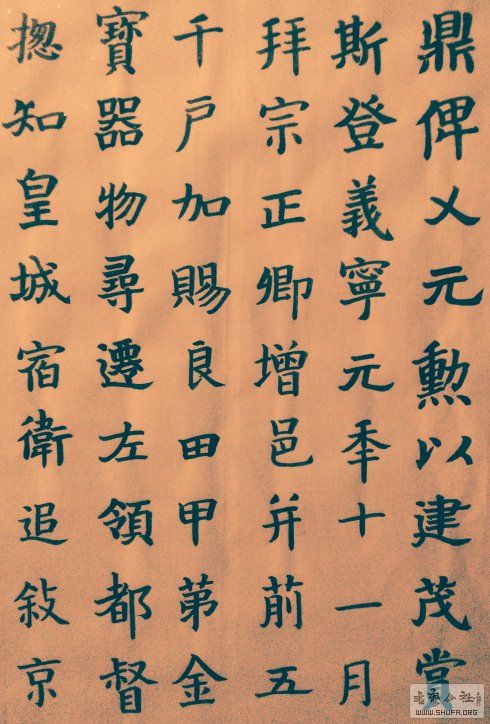 鼎俾乂元勲以建茂賞
斯登義寧元秊十一月
拜宗正卿增邑并前五
千戶加賜良田甲第金
寶器物尋遷左領都督
揔知皇城宿衛追敍京
WWW.SHUFA.ORG